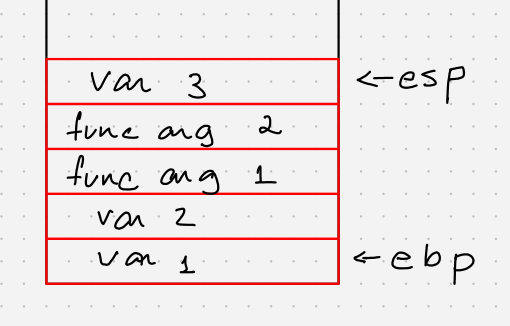 var 3 ← esp
func arg 2
func arg 1
var 2
var 1 ← ebp